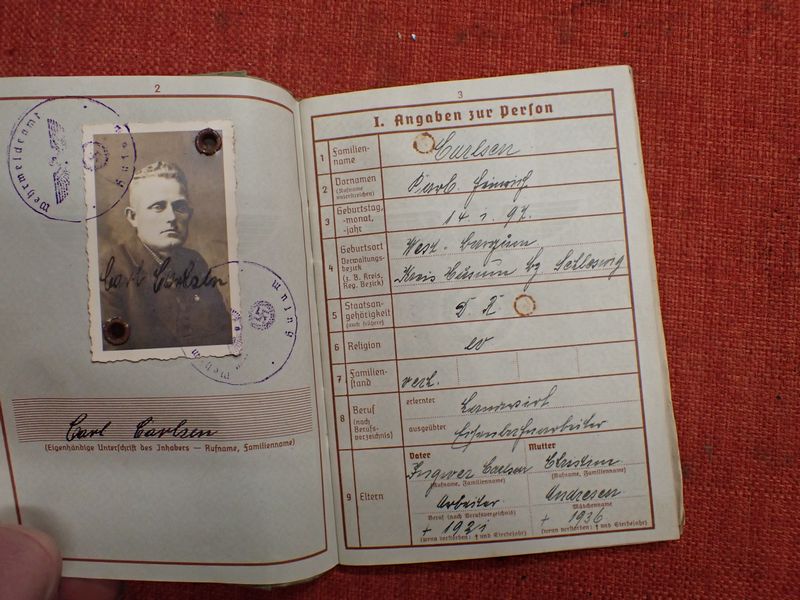 2
Wehrmeldeamt
Husum
Carl Carlsen
Carl Carlsen
(Eigenhändige Unterschrift des Inhabers — Rufname, Familienname)
3
I. Angaben zur Person
1 Familien-
name
Carlsen
2 Vornamen
(Rufname
unterstreichen)
Karl Heinrich
3 Geburtstag,
-monat,
-jahr
14. 1. 97.
4 Geburtsort
Verwaltungs-
bezirk
(z. B. Kreis,
Reg. Bezirk)
West-Bargum
Kreis Husum Bz Schleswig
5 Staatsan-
gehörigkeit
(auch frühere)
D. R.
6 Religion
ev
7 Familien-
stand
verh.
8 Beruf
(nach
Berufs-
verzeichnis)
erlernter
Landwirt
ausgeübter
Eisenbahnarbeiter
9 Eltern
Vater
Ingwer Carlsen
(Rufname, Familienname)
Arbeiter
Beruf (nach Berufsverzeichnis)
+ 1921
(wenn verstorben: † und Sterbejahr)
Mutter
Christine
(Rufname, Familienname)
Andresen
Mädchenname
+ 1936
(wenn verstorben: † und Sterbejahr)